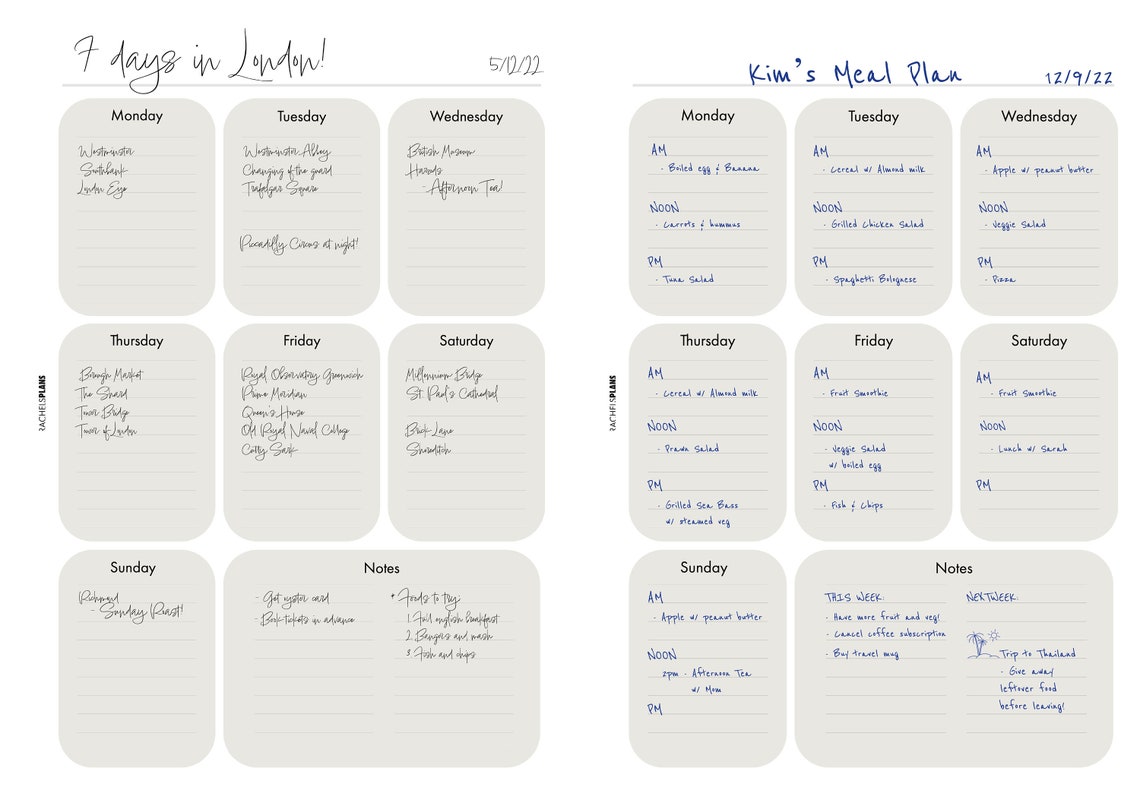 7 days in London!
5/12/22
Monday
Westminster
Southbank
London Eye
Tuesday
Westminster Abbey
Changing of the guard
Trafalgar Square
Piccadilly Circus at night!
Wednesday
British Museum
Harrods
- Afternoon Tea!
Thursday
Borough Market
The Shard
Tower Bridge
Tower of London
Friday
Royal Observatory Greenwich
Prime Meridian
Queen's House
Old Royal Naval College
Cutty Sark
Saturday
Millennium Bridge
St. Paul's Cathedral
Brick Lane
Shoreditch
Sunday
Richmond
- Sunday Roast!
Notes
- Get oyster card
- Book tickets in advance
* Foods to try:
1. Full english breakfast
2. Bangers and mash
3. Fish and chips
RACHELSPLANS
Kim's Meal Plan
12/9/22
Monday
AM
- Boiled egg & Banana
NOON
- Carrots & hummus
PM
- Tuna Salad
Tuesday
AM
- Cereal w/ Almond milk
NOON
- Grilled Chicken Salad
PM
- Spaghetti Bolognese
Wednesday
AM
- Apple w/ peanut butter
NOON
- Veggie Salad
PM
- Pizza
Thursday
AM
- Cereal w/ Almond milk
NOON
- Prawn Salad
PM
- Grilled Sea Bass
w/ steamed veg
Friday
AM
- Fruit Smoothie
NOON
- Veggie Salad
w/ boiled egg
PM
- Fish & Chips
Saturday
AM
- Fruit Smoothie
NOON
- Lunch w/ Sarah
PM
Sunday
AM
- Apple w/ peanut butter
NOON
2pm - Afternoon Tea
w/ Mom
PM
Notes
THIS WEEK:
- Have more fruit and veg!
- Cancel coffee subscription
- Buy travel mug
NEXT WEEK:
Trip to Thailand
- Give away
leftover food
before leaving!
RACHELSPLANS